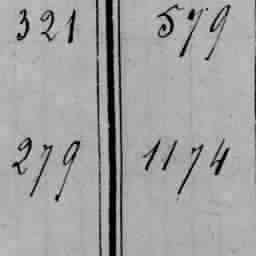 321 579
279 1174